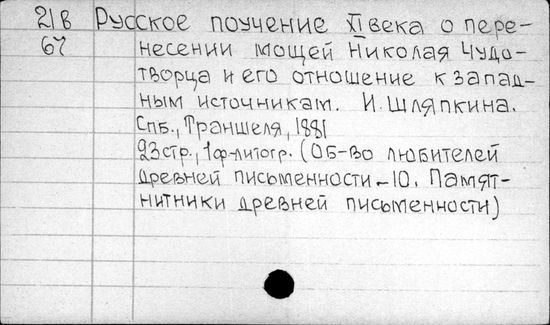 21в Русское поучение XI века о пере-
67 несении мощей Николая Чудо-
творца и его отношение к запад-
ным источникам. И. Шляпкина.
Спб., Траншеля, 1881
23стр., 1ф-литогр. (Об-во любителей
древней письменности-10. Памят-
нитники древней письменности)